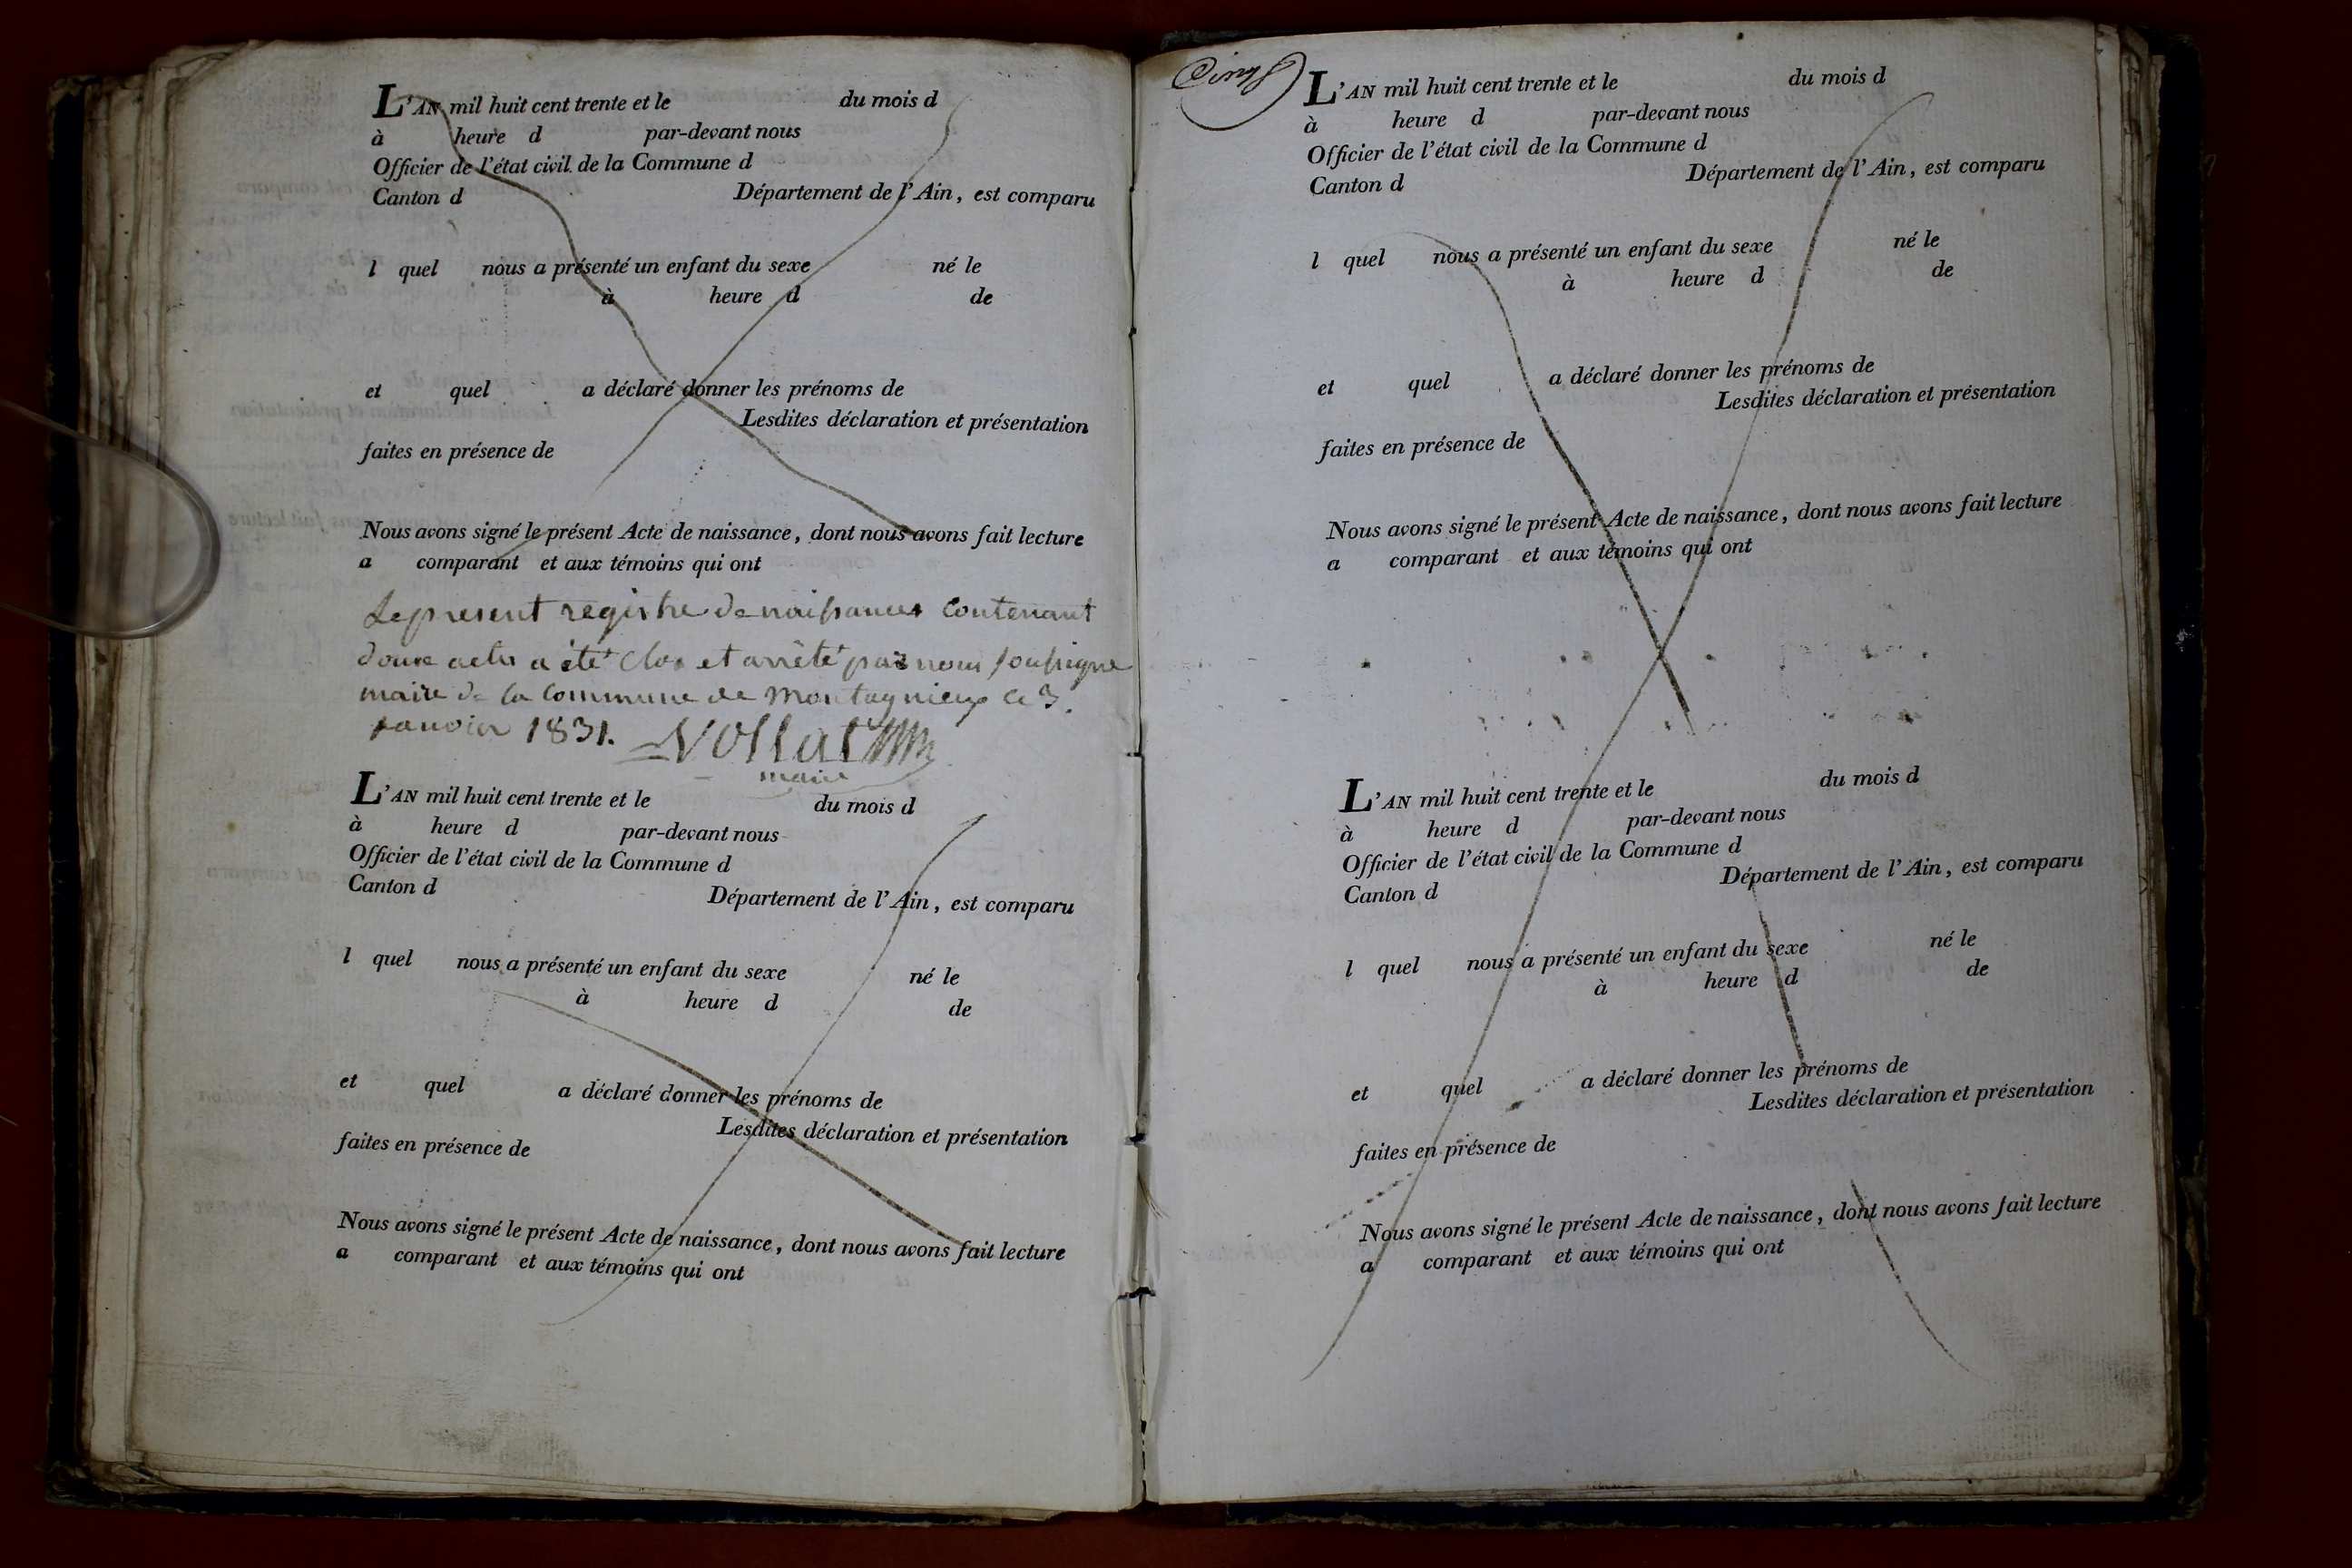 L'AN mil huit cent trente et le du mois d
à heure d par-devant nous
Officier de l'état civil de la Commune d
Canton d Département de l'Ain, est comparu
l quel nous a présenté un enfant du sexe né le
à heure d de
et quel a déclaré donner les prénoms de
Lesdites déclaration et présentation
faites en présence de
Nous avons signé le présent Acte de naissance, dont nous avons fait lecture
a comparant et aux témoins qui ont
Le present registre de naissances contenant
douze actes a été clos et arrêté par nous soussigné
maire de la Commune de Montagnieux ce 3.
janvier 1831.
maire
L'AN mil huit cent trente et le du mois d
à heure d par-devant nous
Officier de l'état civil de la Commune d
Canton d Département de l'Ain, est comparu
l quel nous a présenté un enfant du sexe né le
à heure d de
et quel a déclaré donner les prénoms de
Lesdites déclaration et présentation
faites en présence de
Nous avons signé le présent Acte de naissance, dont nous avons fait lecture
a comparant et aux témoins qui ont
L'AN mil huit cent trente et le du mois d
à heure d par-devant nous
Officier de l'état civil de la Commune d
Canton d Département de l'Ain, est comparu
l quel nous a présenté un enfant du sexe né le
à heure d de
et quel a déclaré donner les prénoms de
Lesdites déclaration et présentation
faites en présence de
Nous avons signé le présent Acte de naissance, dont nous avons fait lecture
a comparant et aux témoins qui ont
L'AN mil huit cent trente et le du mois d
à heure d par-devant nous
Officier de l'état civil de la Commune d
Canton d Département de l'Ain, est comparu
l quel nous a présenté un enfant du sexe né le
à heure d de
et quel a déclaré donner les prénoms de
Lesdites déclaration et présentation
faites en présence de
Nous avons signé le présent Acte de naissance, dont nous avons fait lecture
a comparant et aux témoins qui ont